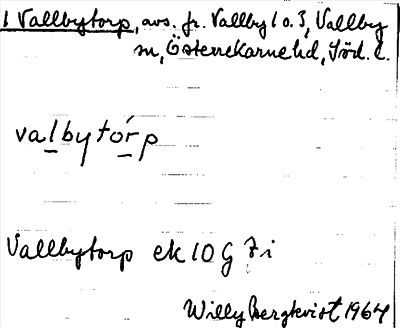 1 Vallbytorp, avs. fr. Vallby 1 o. 3, Vallby
sn, Österrekarne hd, Söd. l.
valbytórp
Vallbytorp ek 10 G 7 i
Willy Bergkvist 1964